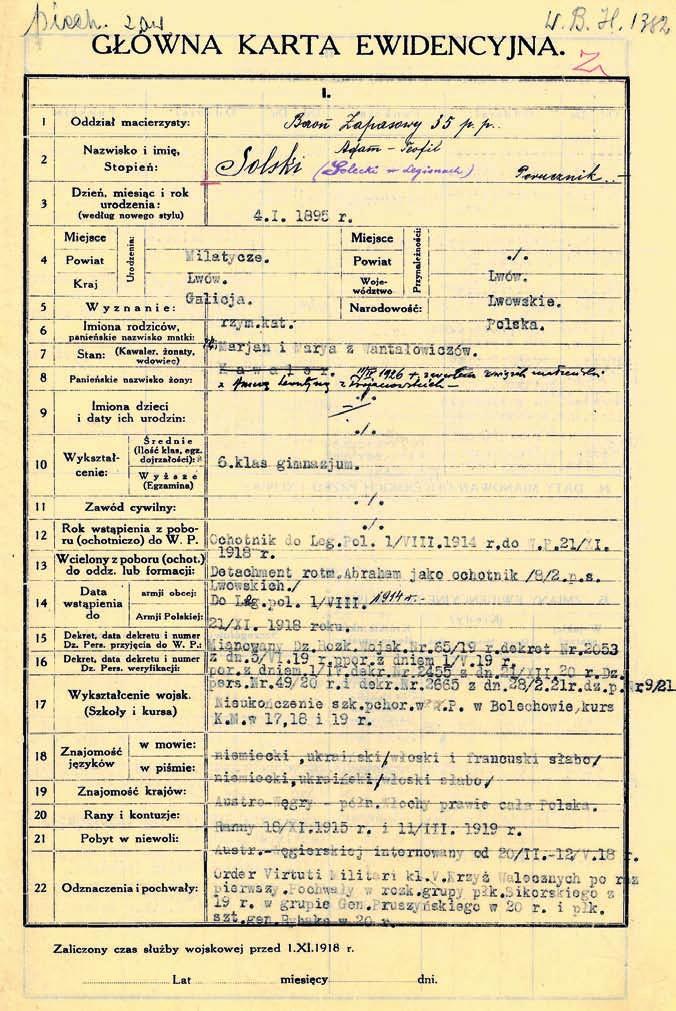 W.B.H. 1382
GŁÓWNA KARTA EWIDENCYJNA.
I.
1 Oddział macierzysty: Baon Zapasowy 35 p.p.
2 Nazwisko i imię, Stopień: Solski Adam – Teofil
(Solecki w Legionach) Porucznik.
3 Dzień, miesiąc i rok
urodzenia:
(według nowego stylu) 4.I. 1895 r.
4 Miejsce Urodzenia: Milatycze. Miejsce Przynależności: ./.
Powiat Lwów. Powiat Lwów.
Kraj Galicja. Województwo Lwowskie.
5 Wyznanie: rzym.kat. Narodowość: Polska.
6 Imiona rodziców,
panieńskie nazwisko matki: Marjan i Marya z Wantałowiczów.
7 Stan: (Kawaler, żonaty,
wdowiec) Kawaler. 1926
8 Panieńskie nazwisko żony:
9 Imiona dzieci
i daty ich urodzin: ./.
10 Wykształcenie: Średnie
(Ilość klas, egz.
dojrzałości): 6.klas gimnazjum.
Wyższe
(Egzamina)
11 Zawód cywilny: ./.
12 Rok wstąpienia z pobo-
ru (ochotniczo) do W. P. Ochotnik do Leg.Pol. 1/VIII.1914 r.do W.P.21/XI.
1918 r.
13 Wcielony z poboru (ochot.)
do oddz. lub formacji: Detachment rotm.Abraham jako ochotnik /8/2.p.s.
Lwowskich./
14 Data
wstąpienia
do armji obcej: Do Leg.pol. 1/VIII. 1914 r.-
Armji Polskiej: 21/XI. 1918 roku.
15 Dekret, data dekretu i numer
Dz. Pers. przyjęcia do W. P.: Mianowany Dz.Rozk.Wojsk.Nr.65/19 r.dekret Nr.2053
z dn.5/VI.19 r.ppor.z dniem 1/V.19 r.
16 Dekret, data dekretu i numer
Dz. Pers. weryfikacji: por.z dniem 1/IV.dekr.Nr.2455 z dn.41/XII.20 r.Dz.
pers.Nr.49/20 r.i dekr.Nr.2665 z dn.28/2.21r.dz.p.Nr9/21
17 Wykształcenie wojsk.
(Szkoły i kursa) Nieukończenie szk.pchor.w P. w Bolechowie,kurs
K.M.w 17,18 i 19 r.
18 Znajomość
języków w mowie: niemiecki ,ukraiński/włoski i francuski słabo/
w piśmie: niemiecki,ukraiński/włoski słabo/
19 Znajomość krajów: Austro-Węgry - półn.Włochy prawie cała Polska.
20 Rany i kontuzje: Ranny 18/XI.1915 r. i 11/III. 1919 r.
21 Pobyt w niewoli: Austr.-Węgierskiej internowany od 20/II.-12/V.18 r.
22 Odznaczenia i pochwały: Order Virtuti Militari kl.V.Krzyż Walecznych po raz
pierwszy.Pochwały w rozk.grupy płk.Sikorskiego z
19 r. w grupie Gen.Pruszyńskiego w 20 r. i płk.
szt.gen.Rybaka w 20 r.
Zaliczony czas służby wojskowej przed 1.XI.1918 r.
Lat miesięcy dni.